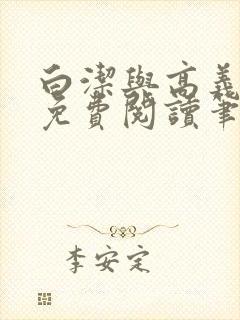 白潔與高義
免費閱讀筆
李安定